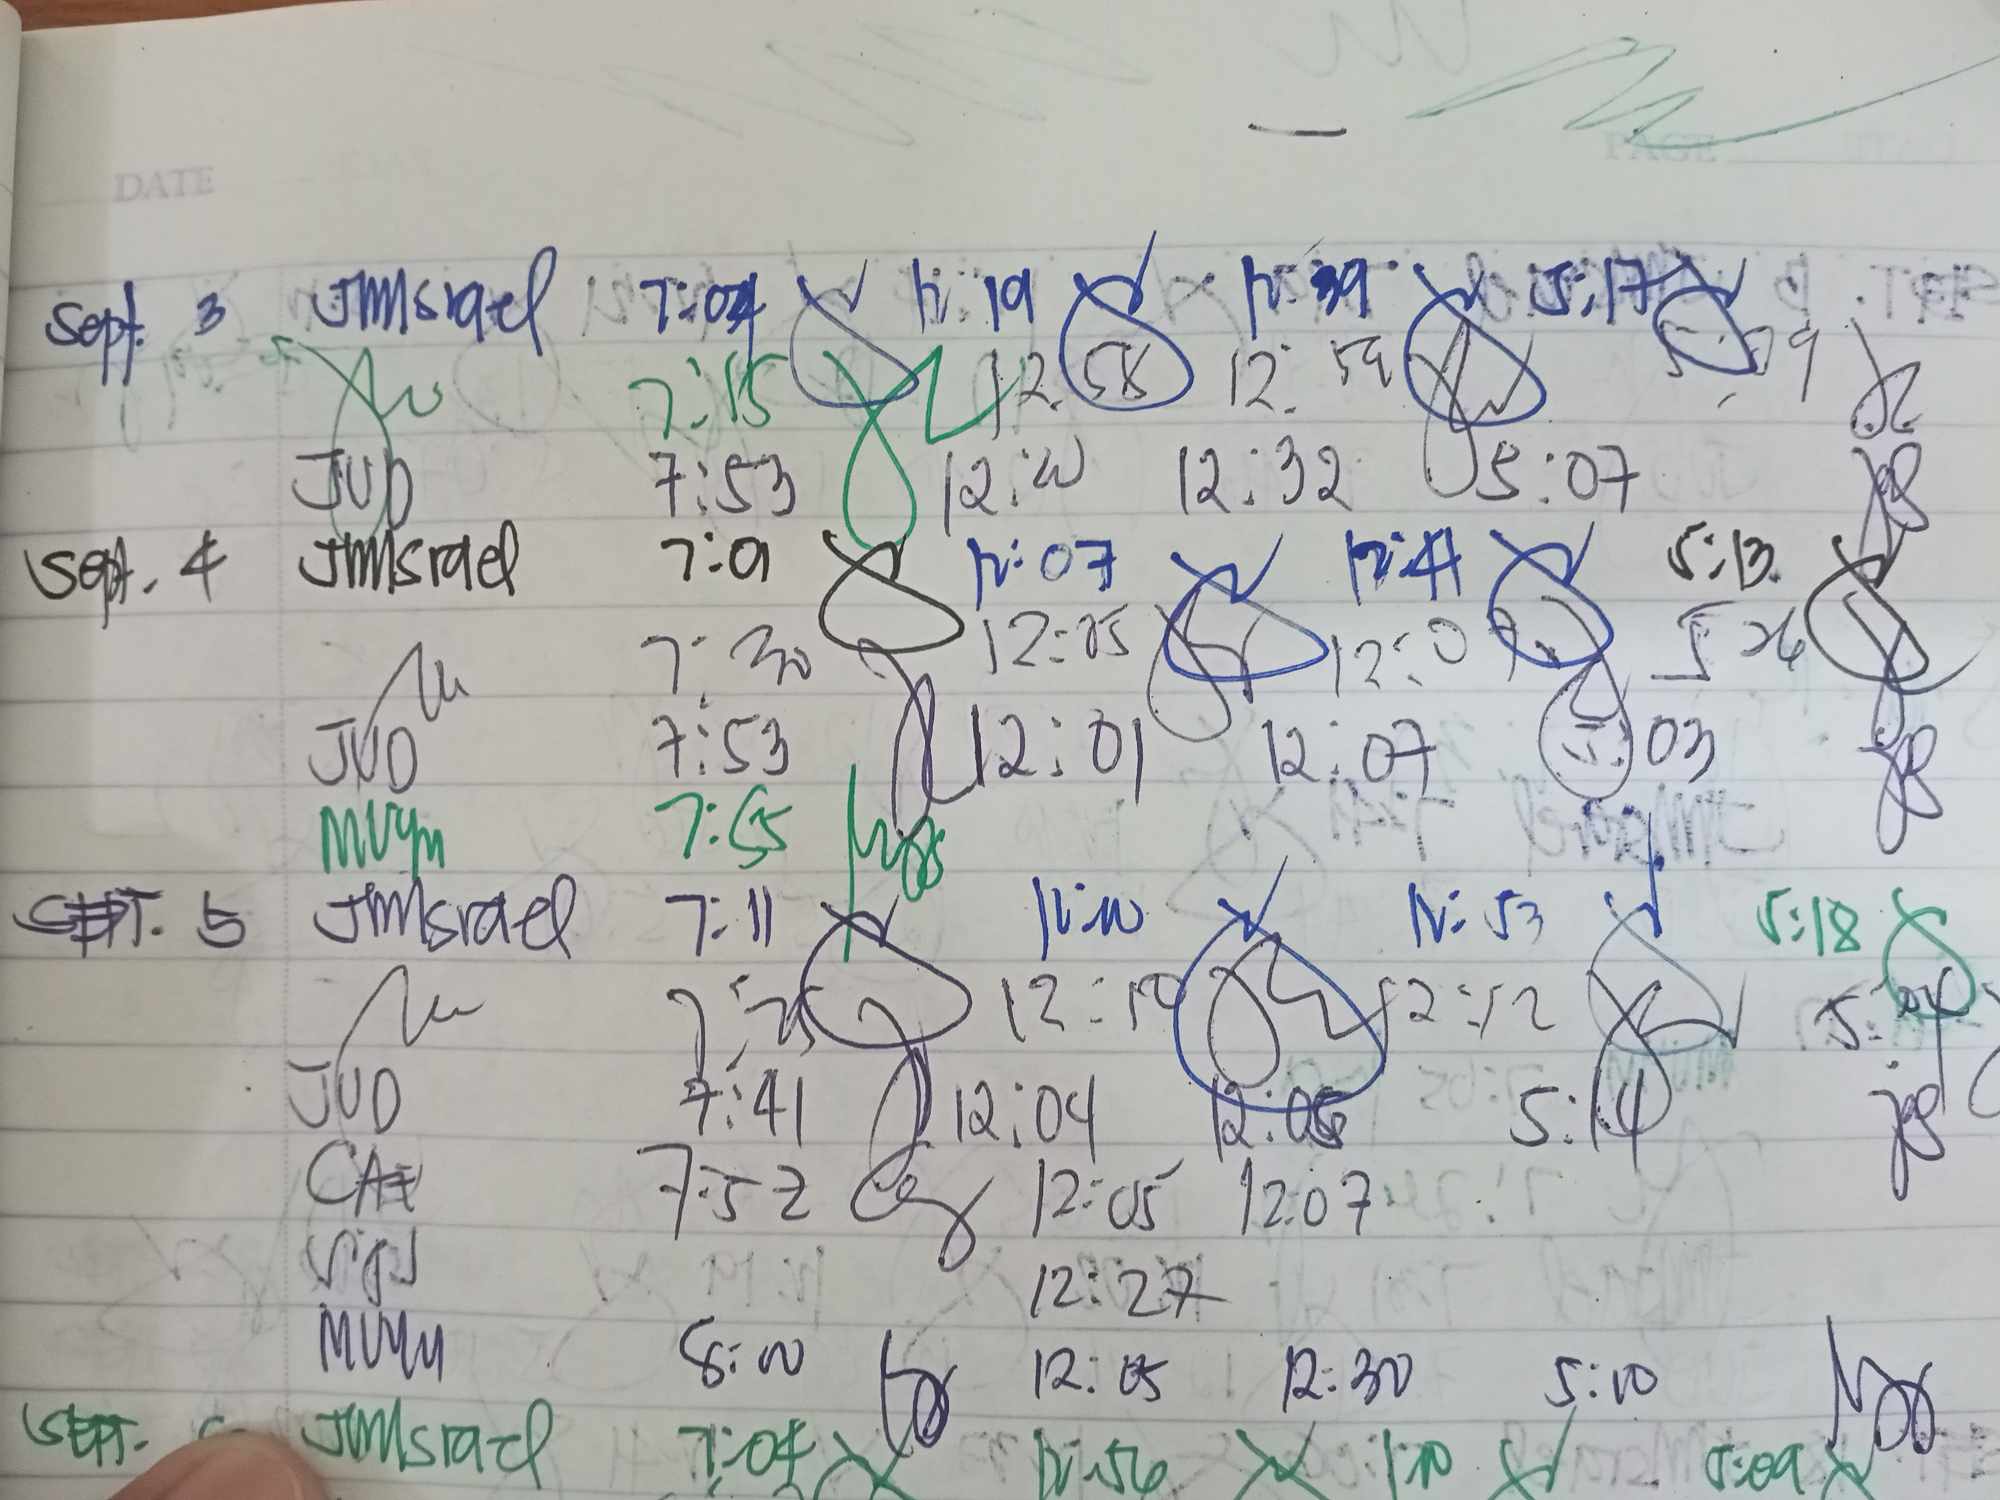 DATE PAGE
Sept. 3 JMIsrael 7:04 12:19 12:39 5:17
7:15 12:58 12:59
JUD 7:53 12:20 12:32 5:07
Sept. 4 JMIsrael 7:01 12:07 12:41 5:13
7:30 12:05 12:07 5:26
JUD 7:53 12:01 12:07 5:03
MVYm 7:55
SEPT. 5 JMIsrael 7:11 12:20 12:53 5:18
7:25 12:10 12:12 5:04
JUD 7:41 12:04 12:06 5:14
CAE 7:52 12:05 12:07
12:27
MVYm 8:00 12:05 12:30 5:10
SEPT. JMIsrael 7:04 12:56 1:10 5:09